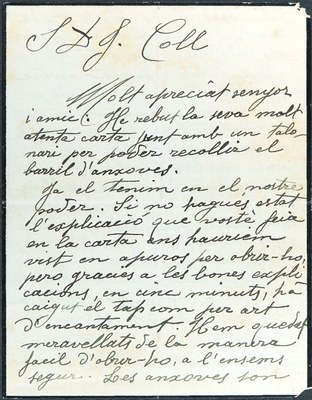 S D J. Coll
Molt apreciat senyor
i amic: He rebut la seva molt
atenta carta junt amb un talo-
nari per poder recollir el
barril d'anxoves.
Ja el tenim en el nostre
poder. Si no hagués estat
l'explicació que vostè feia
en la carta ens hauriem
vist en apuros per obrir-ho,
pero gracies a les bones expli
cacions, en cinc minuts, ha
caigut el tap com per art
d'encantament. Hem quedat
meravellats de la manera
facil d'obrir-ho, a l'ensems
segur. Les anxoves son